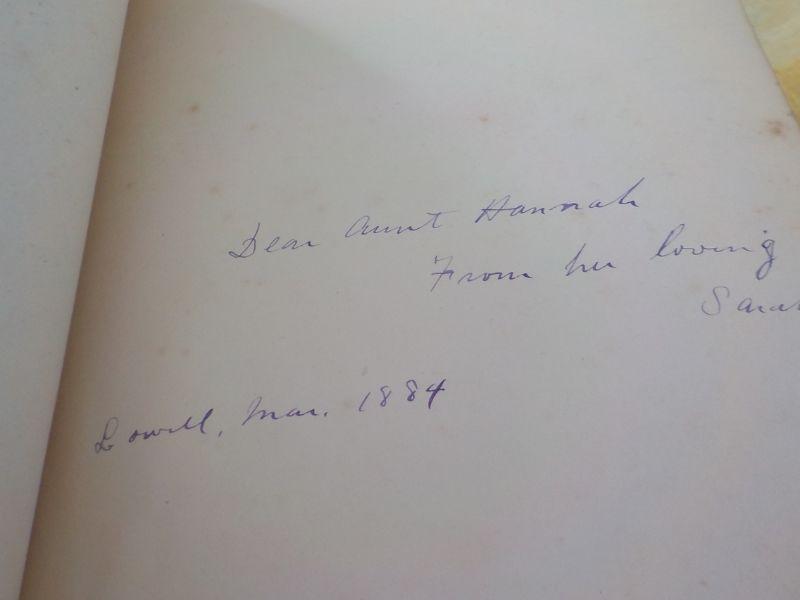 Dear Aunt Hannah
From her loving
Sarah
Lowell, Mar. 1884